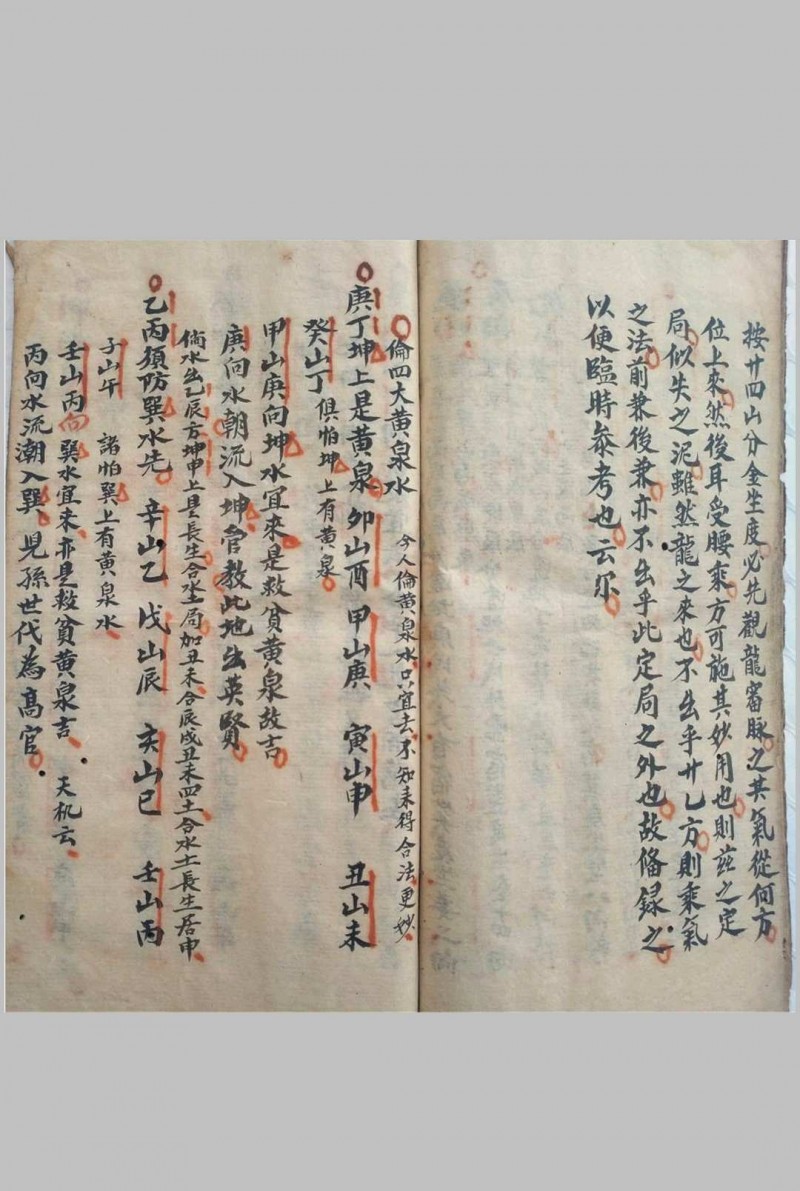 按廿四山分金坐度必先觀龍審脉之其氣從何方
位上來然後耳受腰乘方可施其妙用也則茲之定
局似失之泥雖然龍之來也不出乎廿乚方則乘氣
之法前兼後兼亦不出乎此定局之外也故俻録之
以便臨時叅考也云尔
倫四大黄泉水 今人倫黄泉水只宜去不知来得合法更妙
庚丁坤上是黄泉 卯山酉 甲山庚 寅山申 丑山未
癸山丁 俱怕坤上有黄泉
甲山庚向坤水宜來是救貧黄泉故吉
庚向水朝流入坤管教此地出英賢
倘水出乙辰方坤申上是長生合坐局加丑未合辰戍丑未四土合水土長生居申
乙丙須防巽水先 辛山乙 戊山辰 亥山巳 壬山丙
子山午 諸怕巽上有黄泉水
壬山丙向巽水宜来亦是救貧黄泉吉 天机云
丙向水流潮入巽兒孫世代為高官